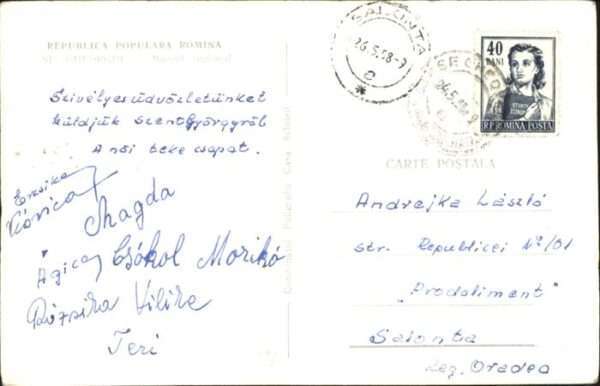 REPUBLICA POPULARA ROMINA
Szivélyes üdvözletünket
küldjük Szentgyörgyről
A női teke csapat.
Piroska
Magda
Ágica Csókol Marikó
Rózsika Vilike
Teri
SALONTA
26.5.58-7
40
BANI
R.P. ROMINA POSTA
CARTE POSTALA
Andrejka László
str. Republicei Nº/01
"Prodaliment"
Salonta
Reg. Oradea